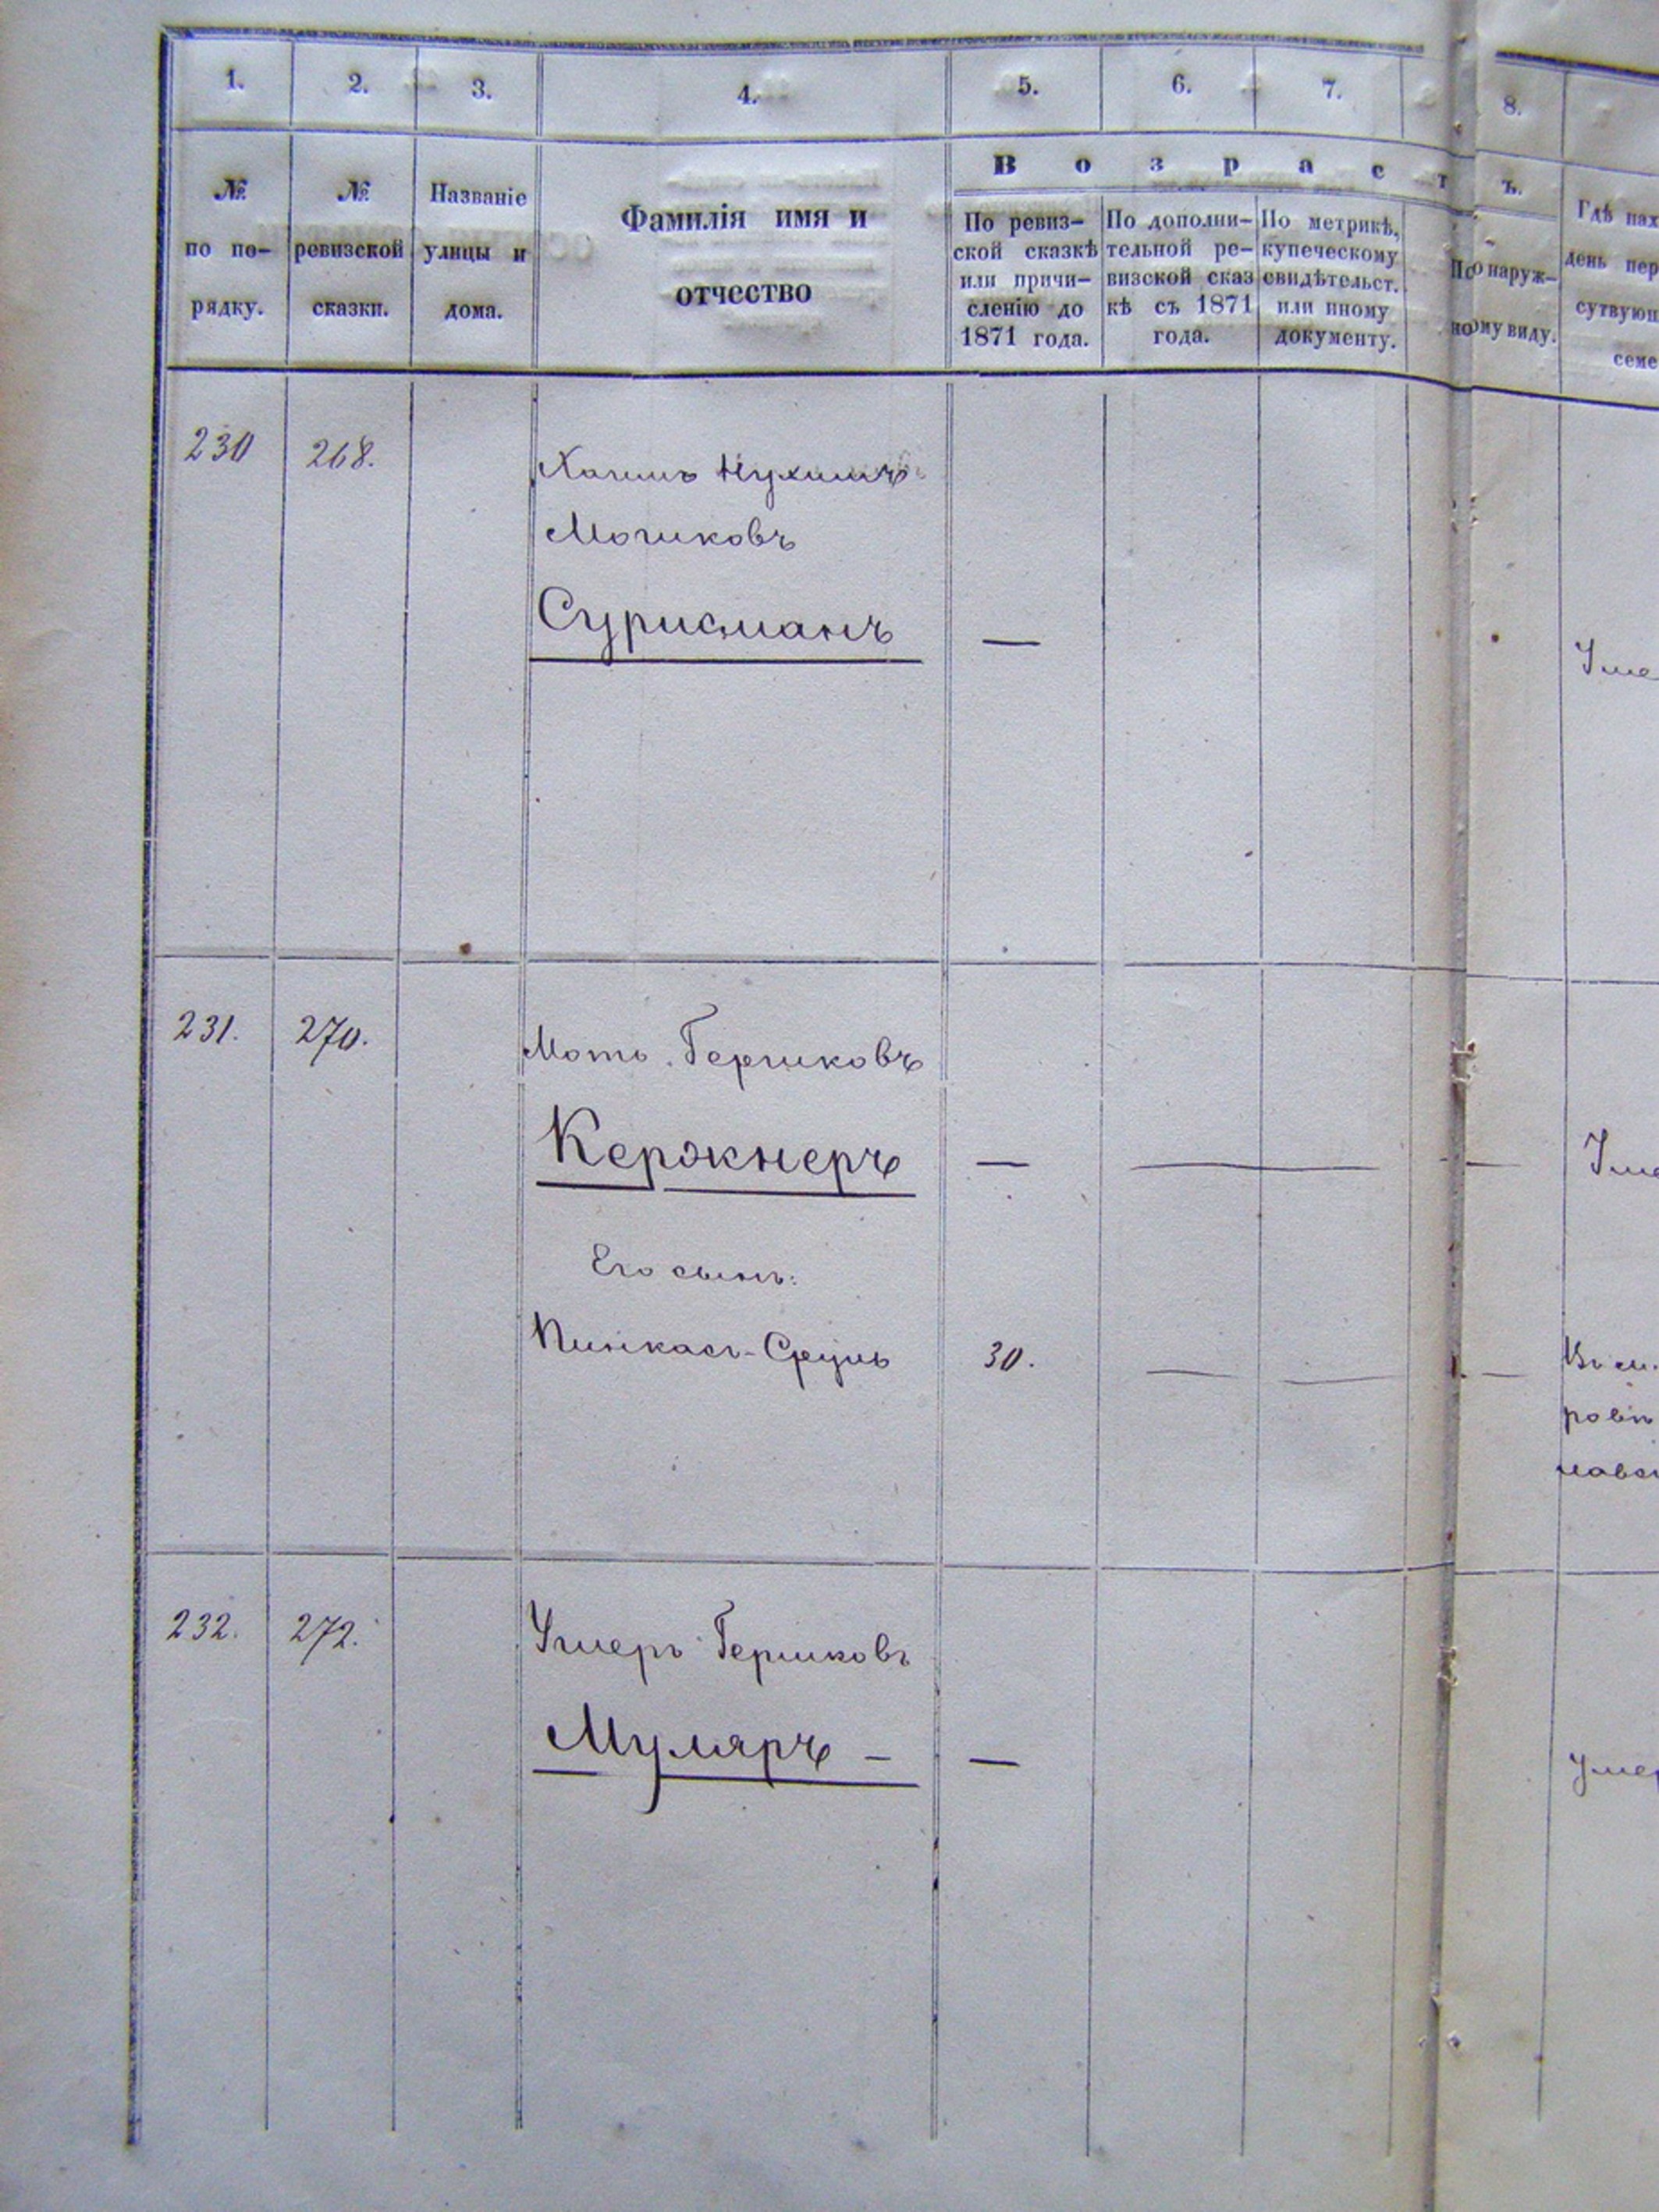 1. 2. 3. 4. 5. 6. 7. 8.
№ по по-рядку.
№ ревизской сказки.
Названіе улицы и дома.
Фамилія имя и
отчество
Возраст ъ.
По ревиз-
ской сказкѣ
или причи-
сленію до
1871 года.
По дополни-
тельной ре-
визской сказ
кѣ съ 1871
года.
По метрикѣ,
купеческому
свидѣтельст.
или иному
документу.
По наруж-
ному виду.
Гдѣ нах
день пер
сутвующ
семе
230 268. Хаимъ Нухимъ
Мошковъ
Сурисманъ —
Уме
231. 270. Мото Гершковъ
Кержнеръ — — — Уме
Его сынъ:
Пинкасъ-Сруль 30. — — —
ровк
232. 272. Ушеръ Гершковъ
Муляръ — — Умер